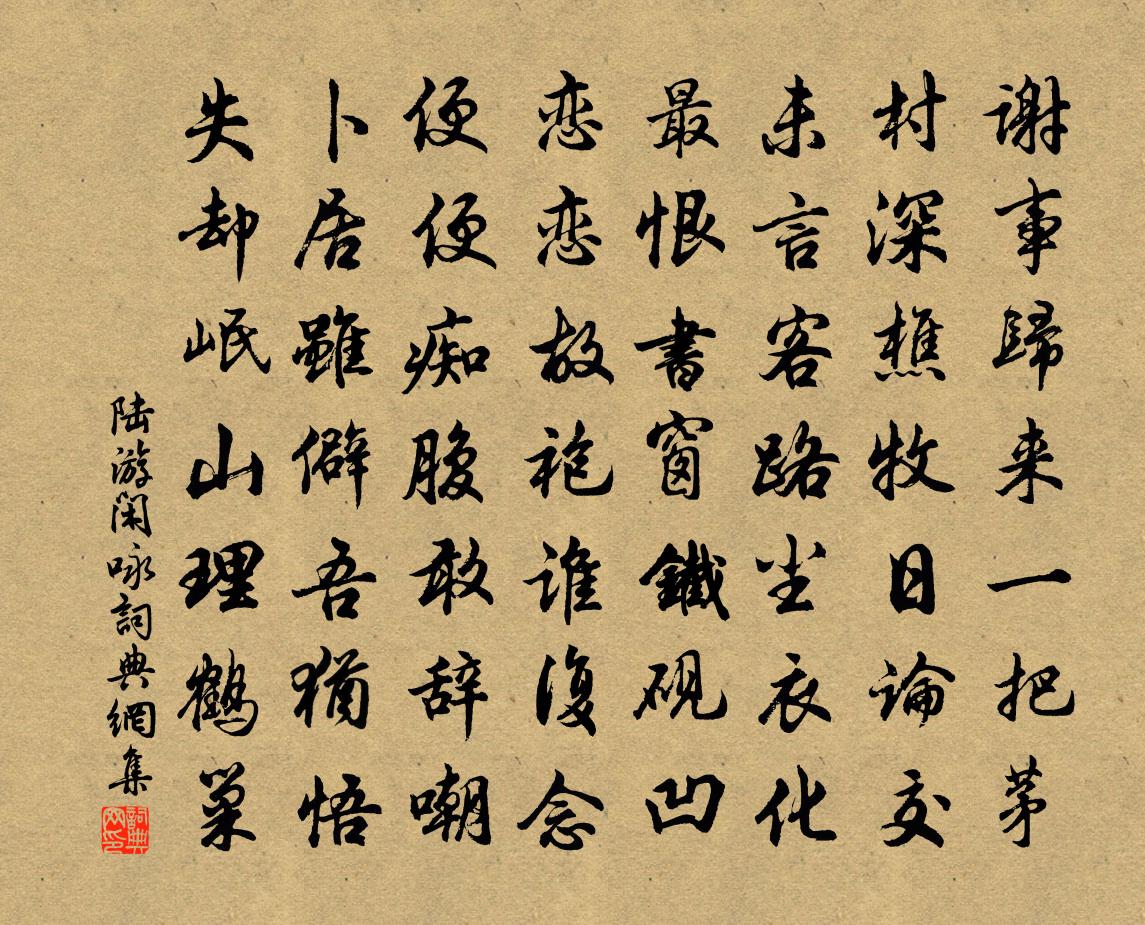 谢事歸来一把茅
村深樵牧日論交
未言客路尘衣化
最恨書窗鐵砚凹
恋恋故袍谁復念
便便痴腹敢辞嘲
卜居雖僻吾猶悟
失却岷山理鹤巢
陆游闲咏詞典網集
詞典网印